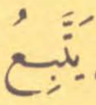 يَتَّبِعُ